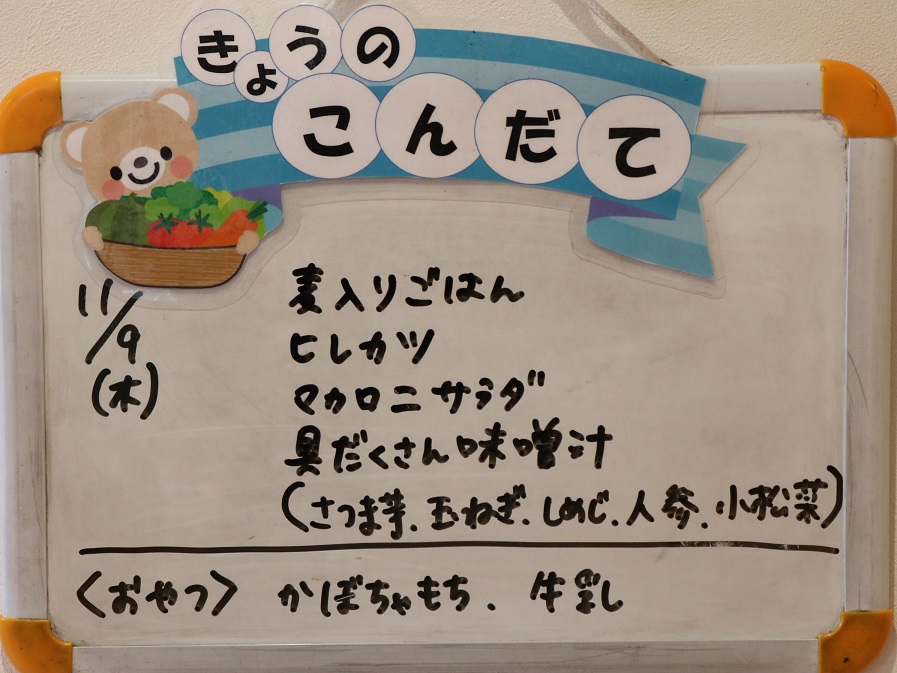 きょうの
こんだて
11/9
(木)
麦入りごはん
ヒレカツ
マカロニサラダ
具だくさん味噌汁
(さつま芋、玉ねぎ、しめじ、人参、小松菜)
<おやつ> かぼちゃもち、牛乳